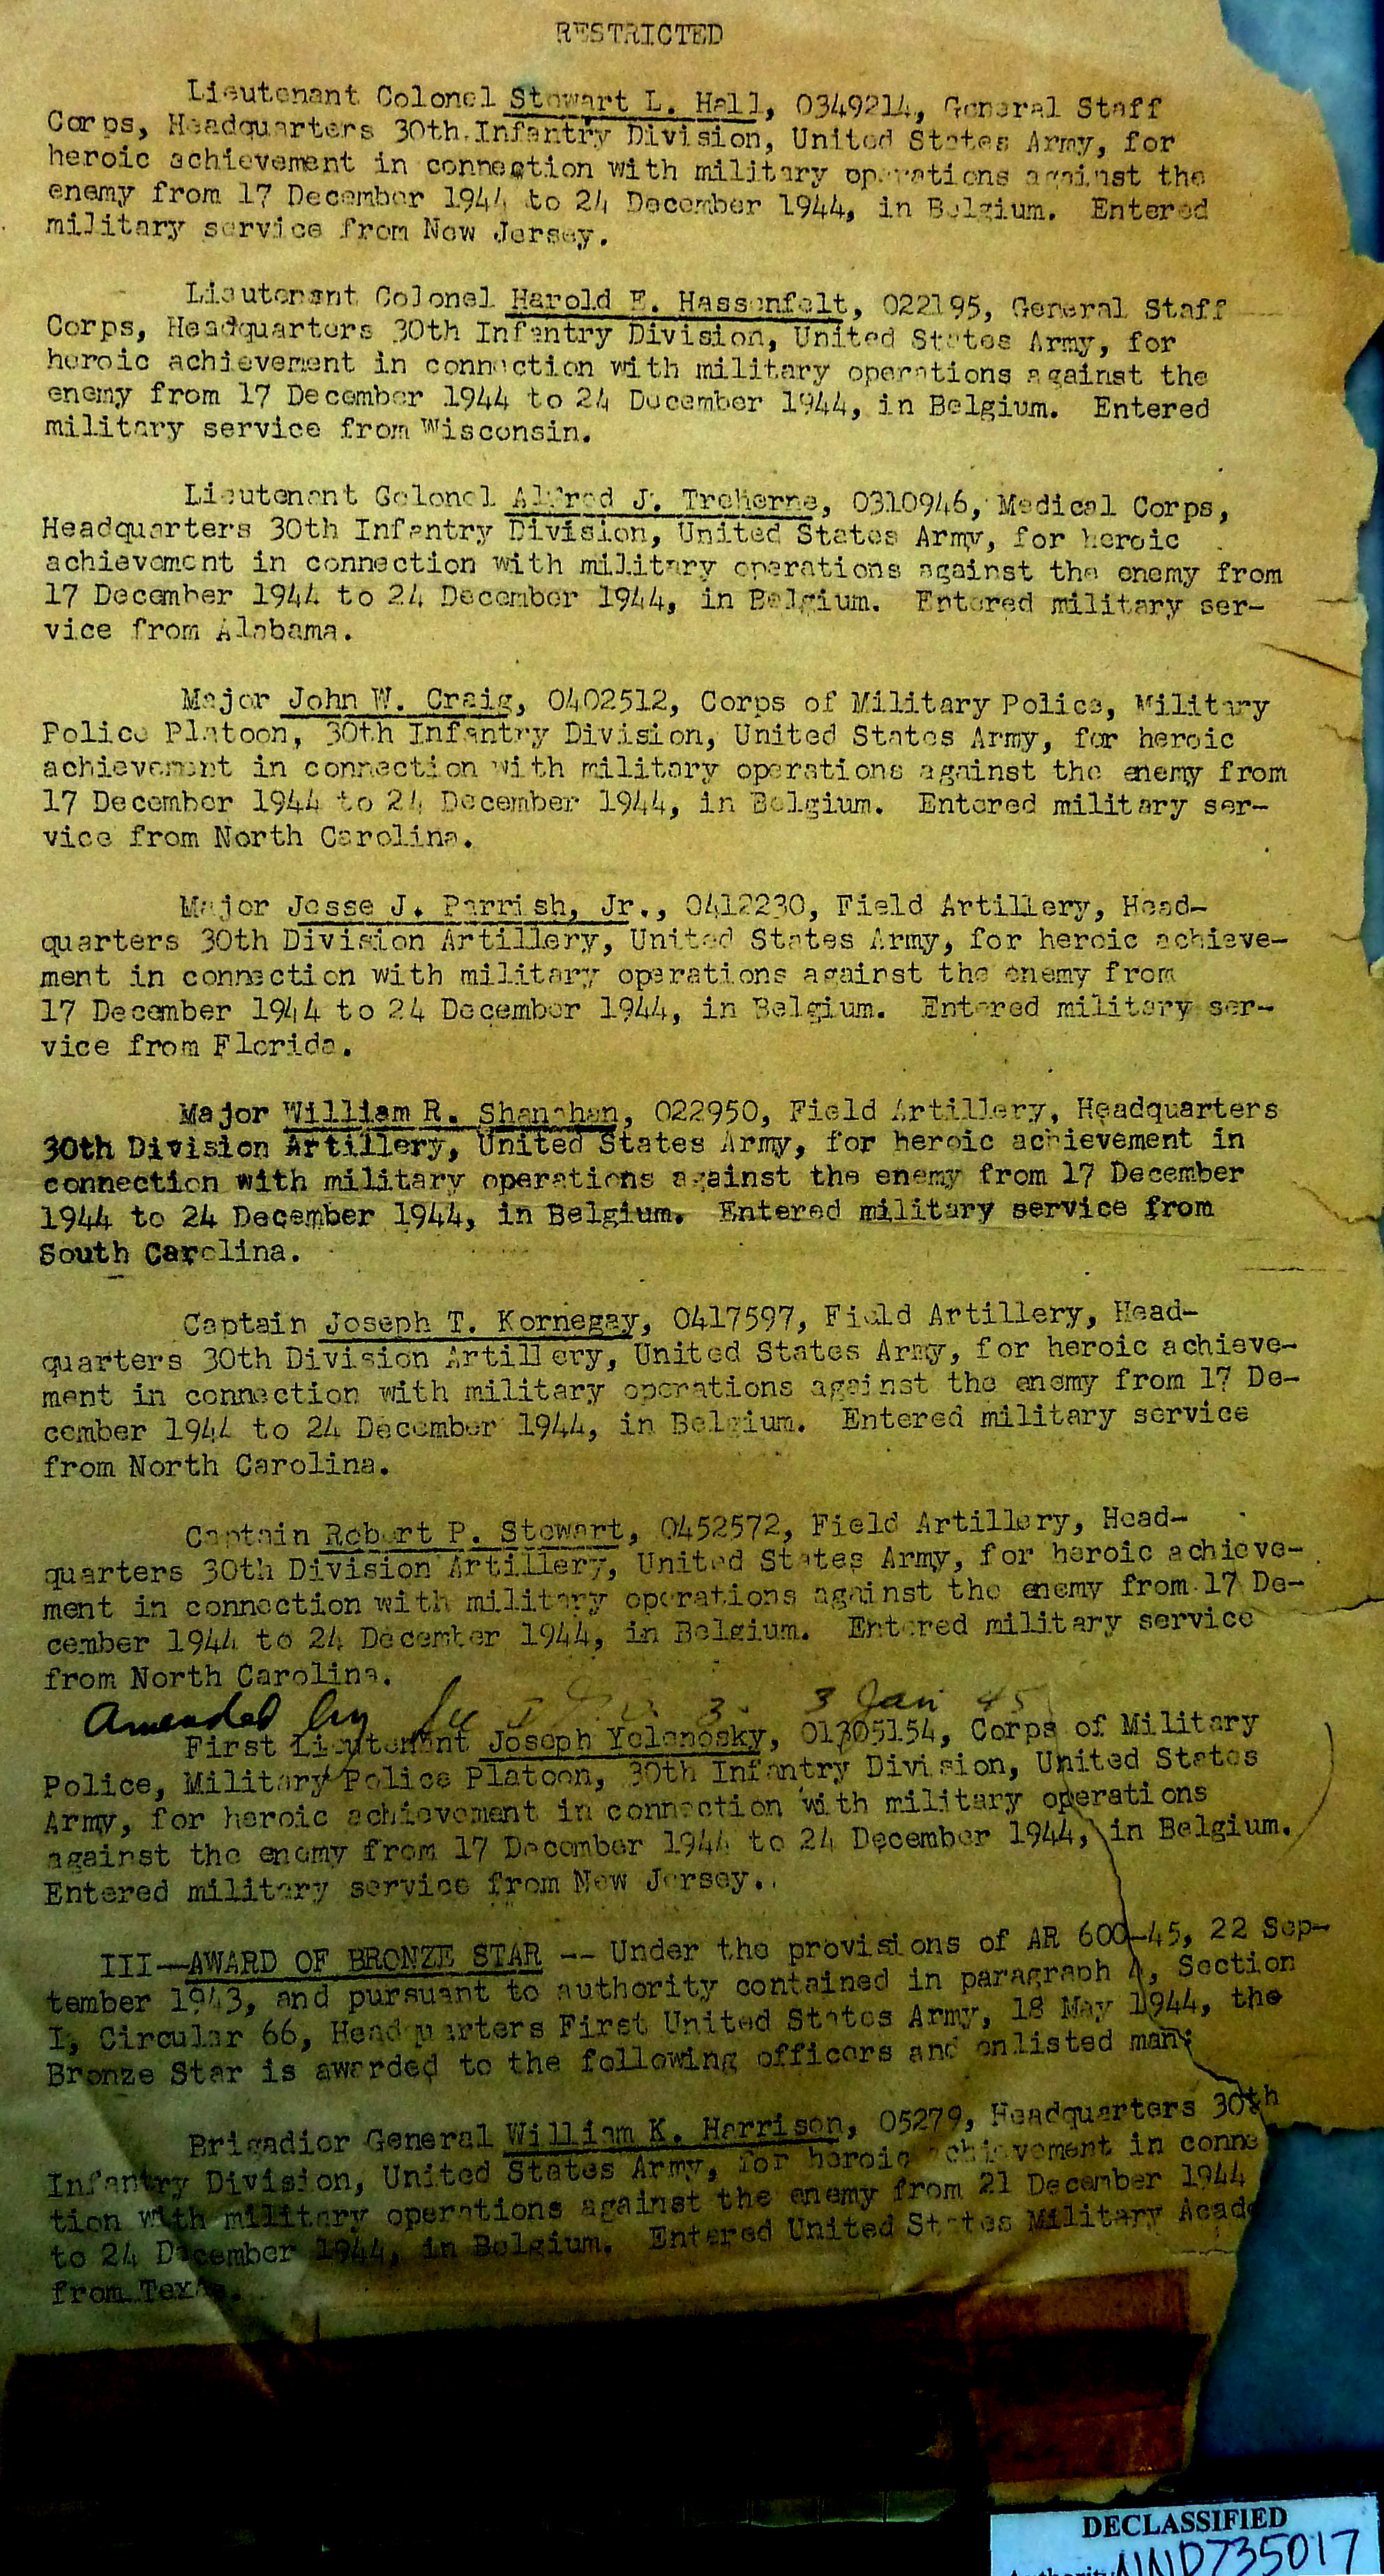 RESTRICTED
Lieutenant Colonel Stewart L. Hall, 0349214, General Staff
Corps, Headquarters 30th Infantry Division, United States Army, for
heroic achievement in connection with military operations against the
enemy from 17 December 1944 to 24 December 1944, in Belgium. Entered
military service from New Jersey.
Lieutenant Colonel Harold E. Hassenfelt, 022195, General Staff
Corps, Headquarters 30th Infantry Division, United States Army, for
heroic achievement in connection with military operations against the
enemy from 17 December 1944 to 24 December 1944, in Belgium. Entered
military service from Wisconsin.
Lieutenant Colonel Alfred J. Treherne, 0310946, Medical Corps,
Headquarters 30th Infantry Division, United States Army, for heroic
achievement in connection with military operations against the enemy from
17 December 1944 to 24 December 1944, in Belgium. Entered military ser-
vice from Alabama.
Major John W. Craig, 0402512, Corps of Military Police, Military
Police Platoon, 30th Infantry Division, United States Army, for heroic
achievement in connection with military operations against the enemy from
17 December 1944 to 24 December 1944, in Belgium. Entered military ser-
vice from North Carolina.
Major Jesse J. Parrish, Jr., 0412230, Field Artillery, Head-
quarters 30th Division Artillery, United States Army, for heroic achieve-
ment in connection with military operations against the enemy from
17 December 1944 to 24 December 1944, in Belgium. Entered military ser-
vice from Florida.
Major William R. Shanahan, 022950, Field Artillery, Headquarters
30th Division Artillery, United States Army, for heroic achievement in
connection with military operations against the enemy from 17 December
1944 to 24 December 1944, in Belgium. Entered military service from
South Carolina.
Captain Joseph T. Kornegay, 0417597, Field Artillery, Head-
quarters 30th Division Artillery, United States Army, for heroic achieve-
ment in connection with military operations against the enemy from 17 De-
cember 1944 to 24 December 1944, in Belgium. Entered military service
from North Carolina.
Captain Robert P. Stewart, 0452572, Field Artillery, Head-
quarters 30th Division Artillery, United States Army, for heroic achieve-
ment in connection with military operations against the enemy from 17 De-
cember 1944 to 24 December 1944, in Belgium. Entered military service
from North Carolina.
Amended by 3 3 Jan 45
First Lieutenant Joseph Yolanosky, 01305154, Corps of Military
Police, Military Police Platoon, 30th Infantry Division, United States
Army, for heroic achievement in connection with military operations
against the enemy from 17 December 1944 to 24 December 1944, in Belgium.
Entered military service from New Jersey.
III—AWARD OF BRONZE STAR -- Under the provisions of AR 600-45, 22 Sep-
tember 1943, and pursuant to authority contained in paragraph 4, Section
I, Circular 66, Headquarters First United States Army, 18 May 1944, the
Bronze Star is awarded to the following officers and enlisted man:
Brigadier General William K. Harrison, 05279, Headquarters 30th
Infantry Division, United States Army, for heroic achievement in conne
tion with military operations against the enemy from 21 December 1944
to 24 December 1944, in Belgium. Entered United States Military Acade
from Texas.
DECLASSIFIED
Authority NND735017